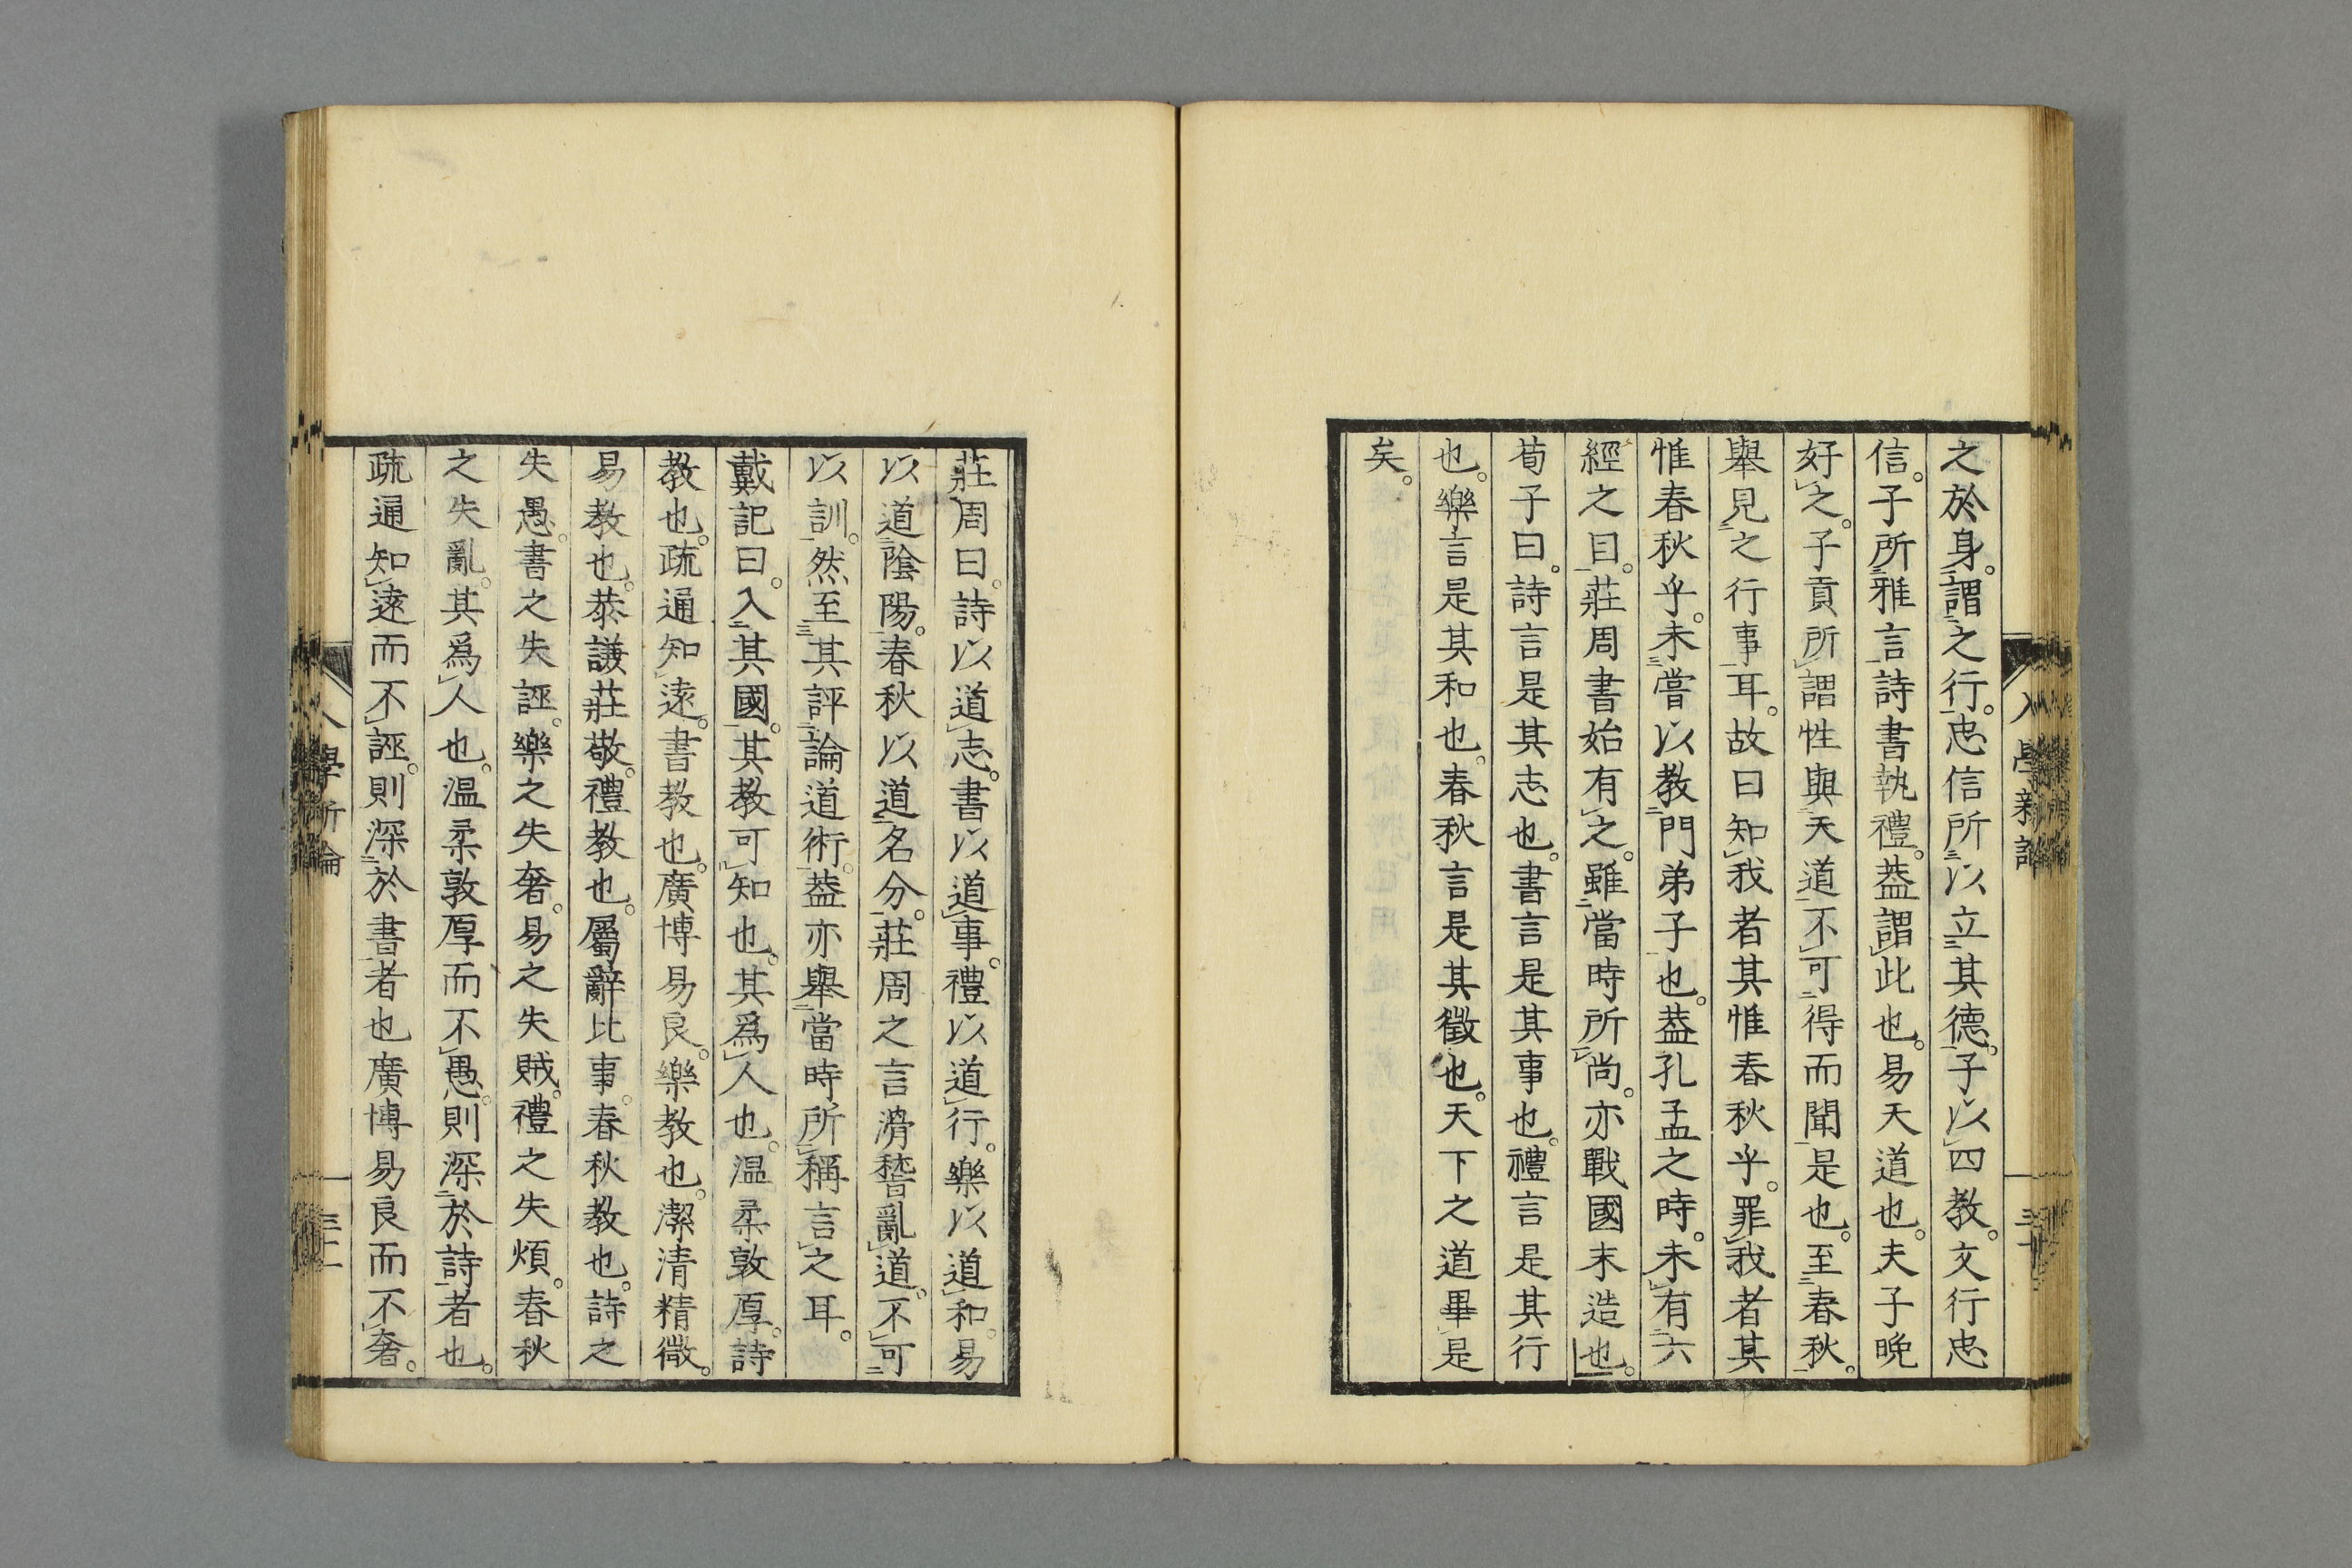 之於身。謂之行。忠信所以立其德。子以四教。文行忠
信。子所雅言詩書執禮。蓋謂此也。易天道也。夫子晚
好之。子貢所謂性與天道不可得而聞是也。至春秋。
舉見之行事耳。故曰知我者其惟春秋乎。罪我者其
惟春秋乎。未嘗以教門弟子也。蓋孔孟之時。未有六
經之目。莊周書始有之。雖當時所尚。亦戰國末造也。
荀子曰。詩言是其志也。書言是其事也。禮言是其行
也。樂言是其和也。春秋言是其徵也。天下之道畢是
矣。
莊周曰。詩以道志。書以道事。禮以道行。樂以道和。易
以道陰陽。春秋以道名分。莊周之言滑稽亂道。不可
以訓。然至其評論道術。蓋亦舉當時所稱言之耳。
戴記曰。入其國。其教可知也。其爲人也。温柔敦厚。詩
教也。疏通知遠。書教也。廣博易良。樂教也。潔清精微。
易教也。恭謙莊敬。禮教也。屬辭比事。春秋教也。詩之
失愚。書之失誣。樂之失奢。易之失賊。禮之失煩。春秋
之失亂。其爲人也。温柔敦厚而不愚。則深於詩者也。
疏通知遠而不誣。則深於書者也廣博易良而不奢。